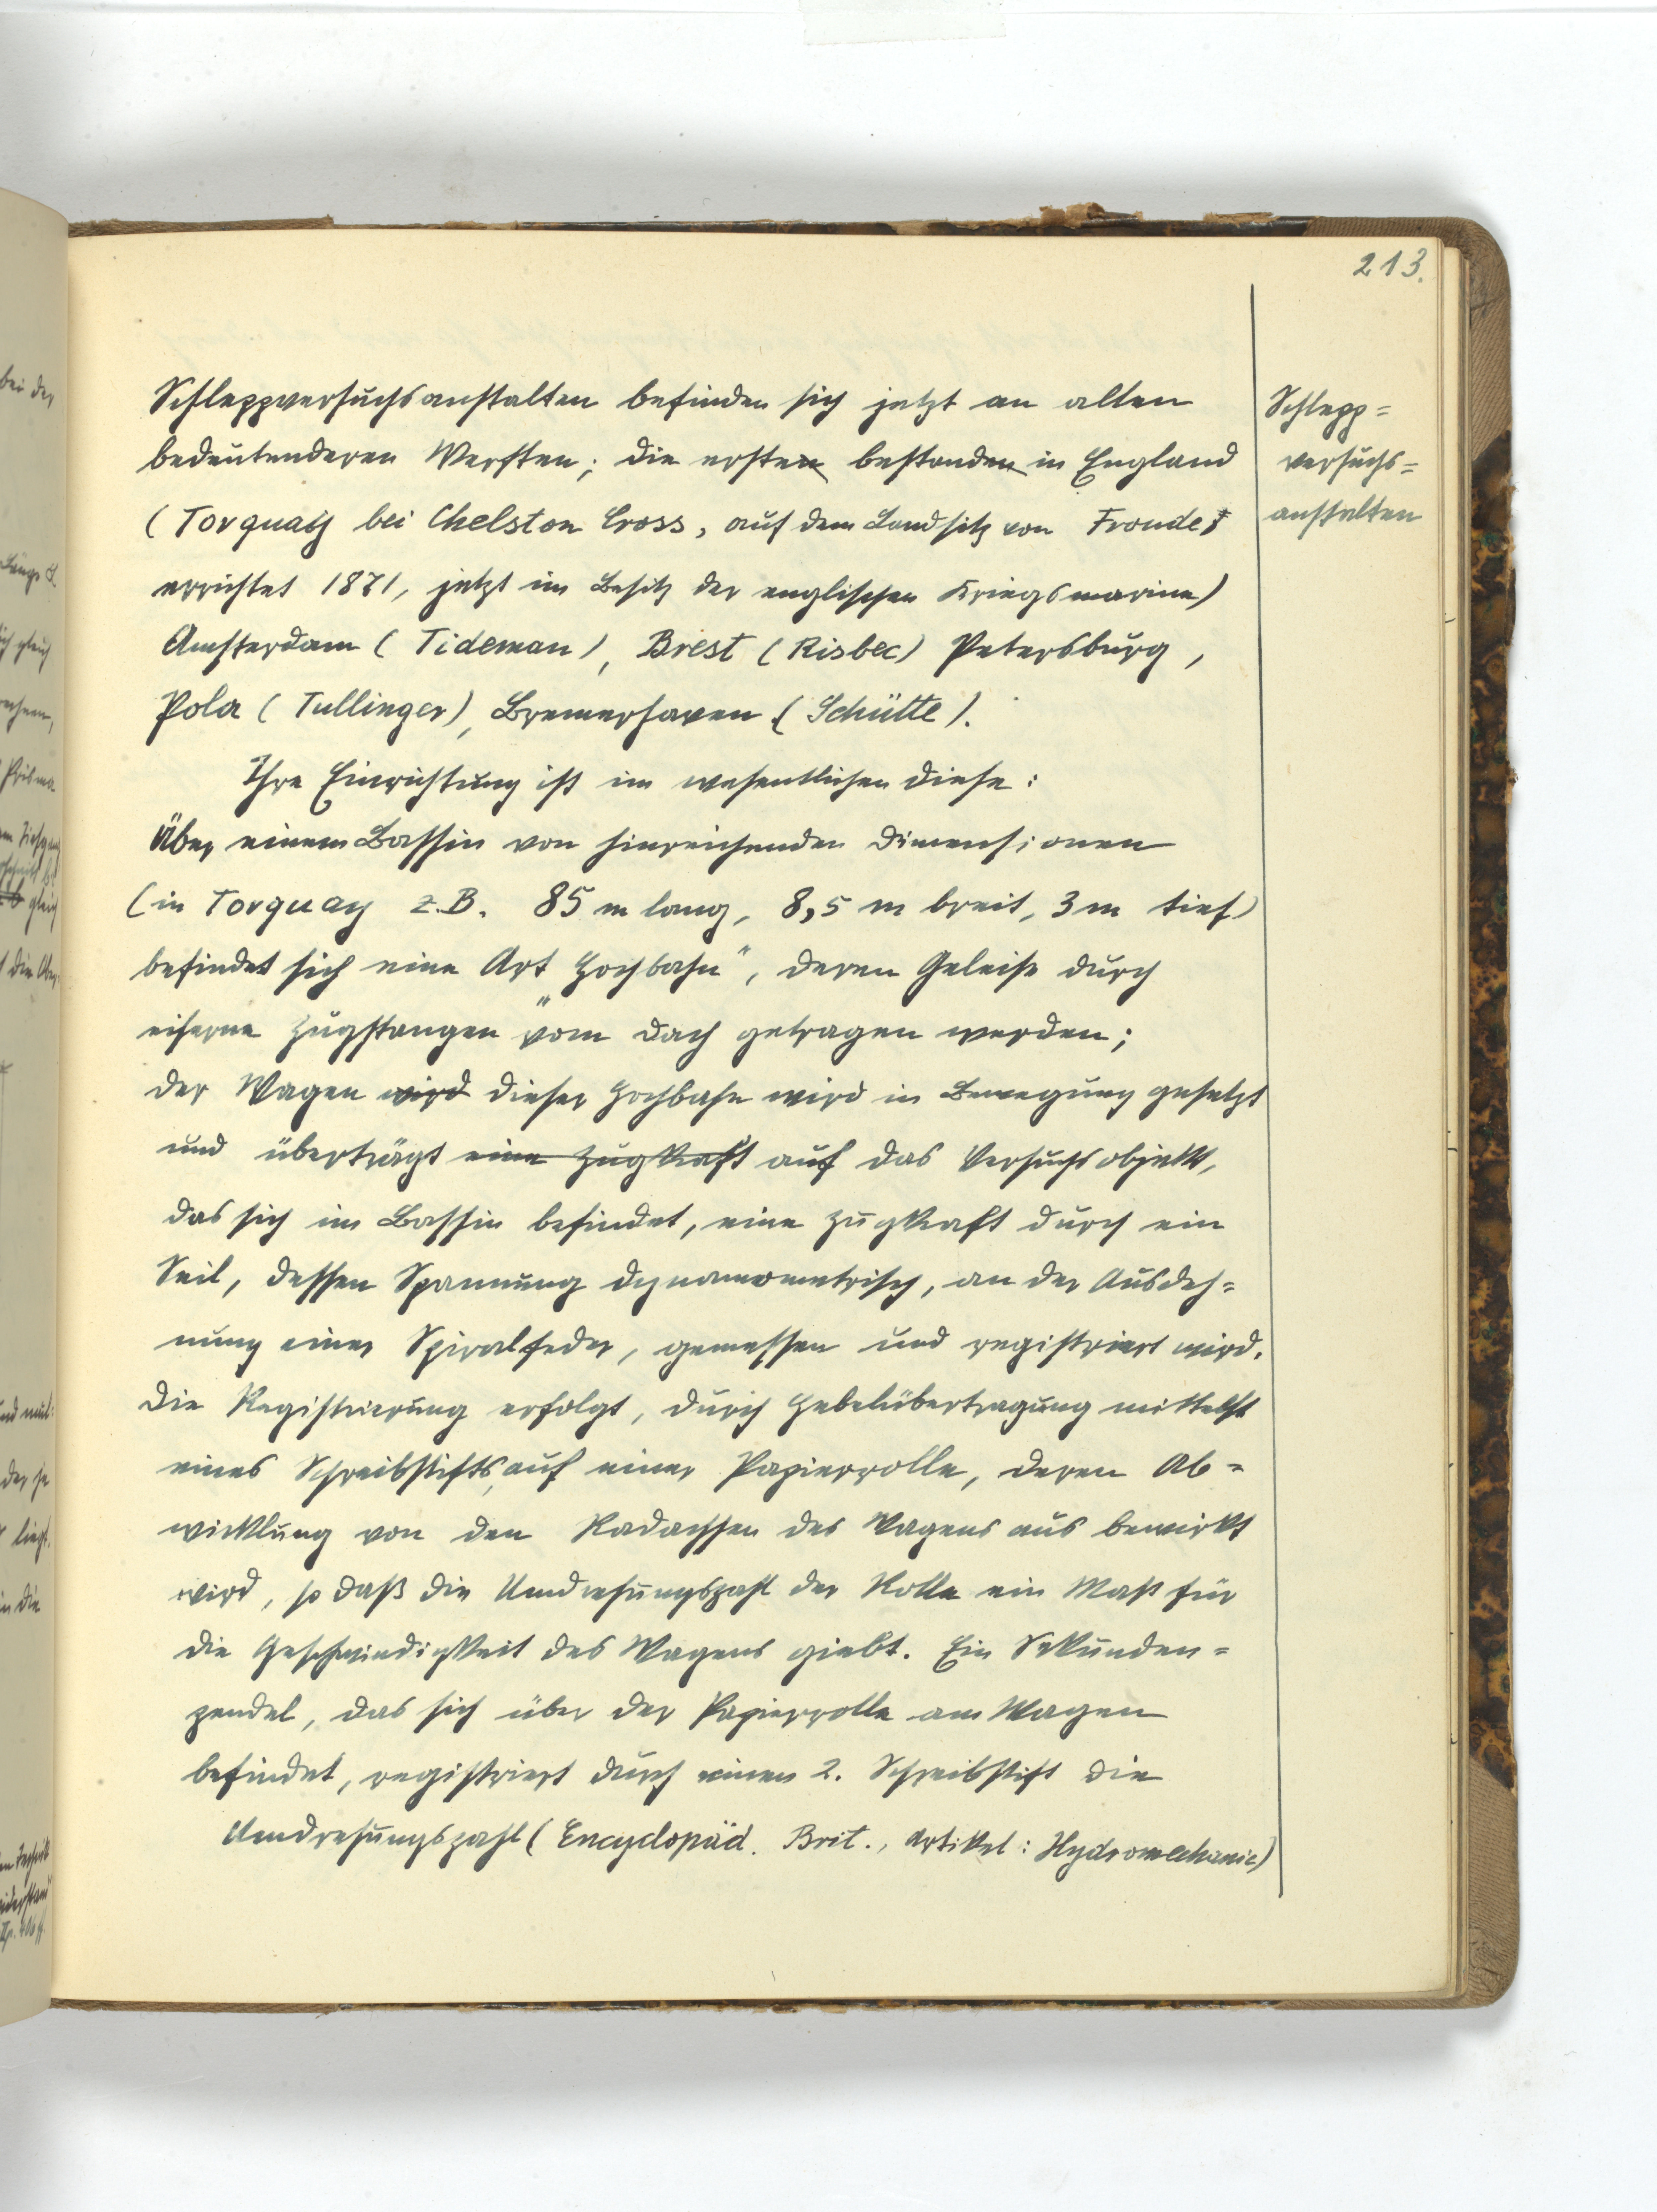 213.
Schlepp=
versuchs=
anstalten
Schleppversuchsanstalten befinden sich jetzt an allen
bedeutenderen Werften; die ersten bestanden in England
(Torquay bei Chelston Cross, auf dem Landsitz von Froude,
errichtet 1871, jetzt im Besitz der englischen Kriegsmarine)
Amsterdam (Tideman), Brest (Risbec) Petersburg,
Pola (Tullinger), Bremerhaven (Schütte).
Ihre Einrichtung ist im wesentlichen diese:
Über einem Bassin von hinreichenden Dimensionen
(in Torquay z.B. 85 m lang, 8,5 m breit, 3 m tief)
befindet sich eine Art „Hochbahn", deren Geleise durch
eiserne Zugstangen vom Dach getragen werden;
der Wagen wird dieser Hochbahn wird in Bewegung gesetzt
und überträgt eine Zugkraft auf das Versuchsobjekt,
das sich im Bassin befindet, eine Zugkraft durch ein
Seil, dessen Spannung dynamometrisch, an der Ausdeh=
nung einer Spiralfeder, gemessen und registriert wird.
Die Registrierung erfolgt, durch Hebelübertragung mittelst
eines Schreibstifts, auf einer Papierrolle, deren Ab=
wicklung von den Radachsen des Wagens aus bewirkt
wird, so daß die Umdrehungszahl der Rolle ein Maß für
die Geschwindigkeit des Wagens giebt. Ein Sekunden=
pendel, das sich über der Papierrolle am Wagen
befindet, registriert durch einen 2. Schreibstift die
Umdrehungszahl (Encyclopäd. Brit., Artikel: Hydromechanic)